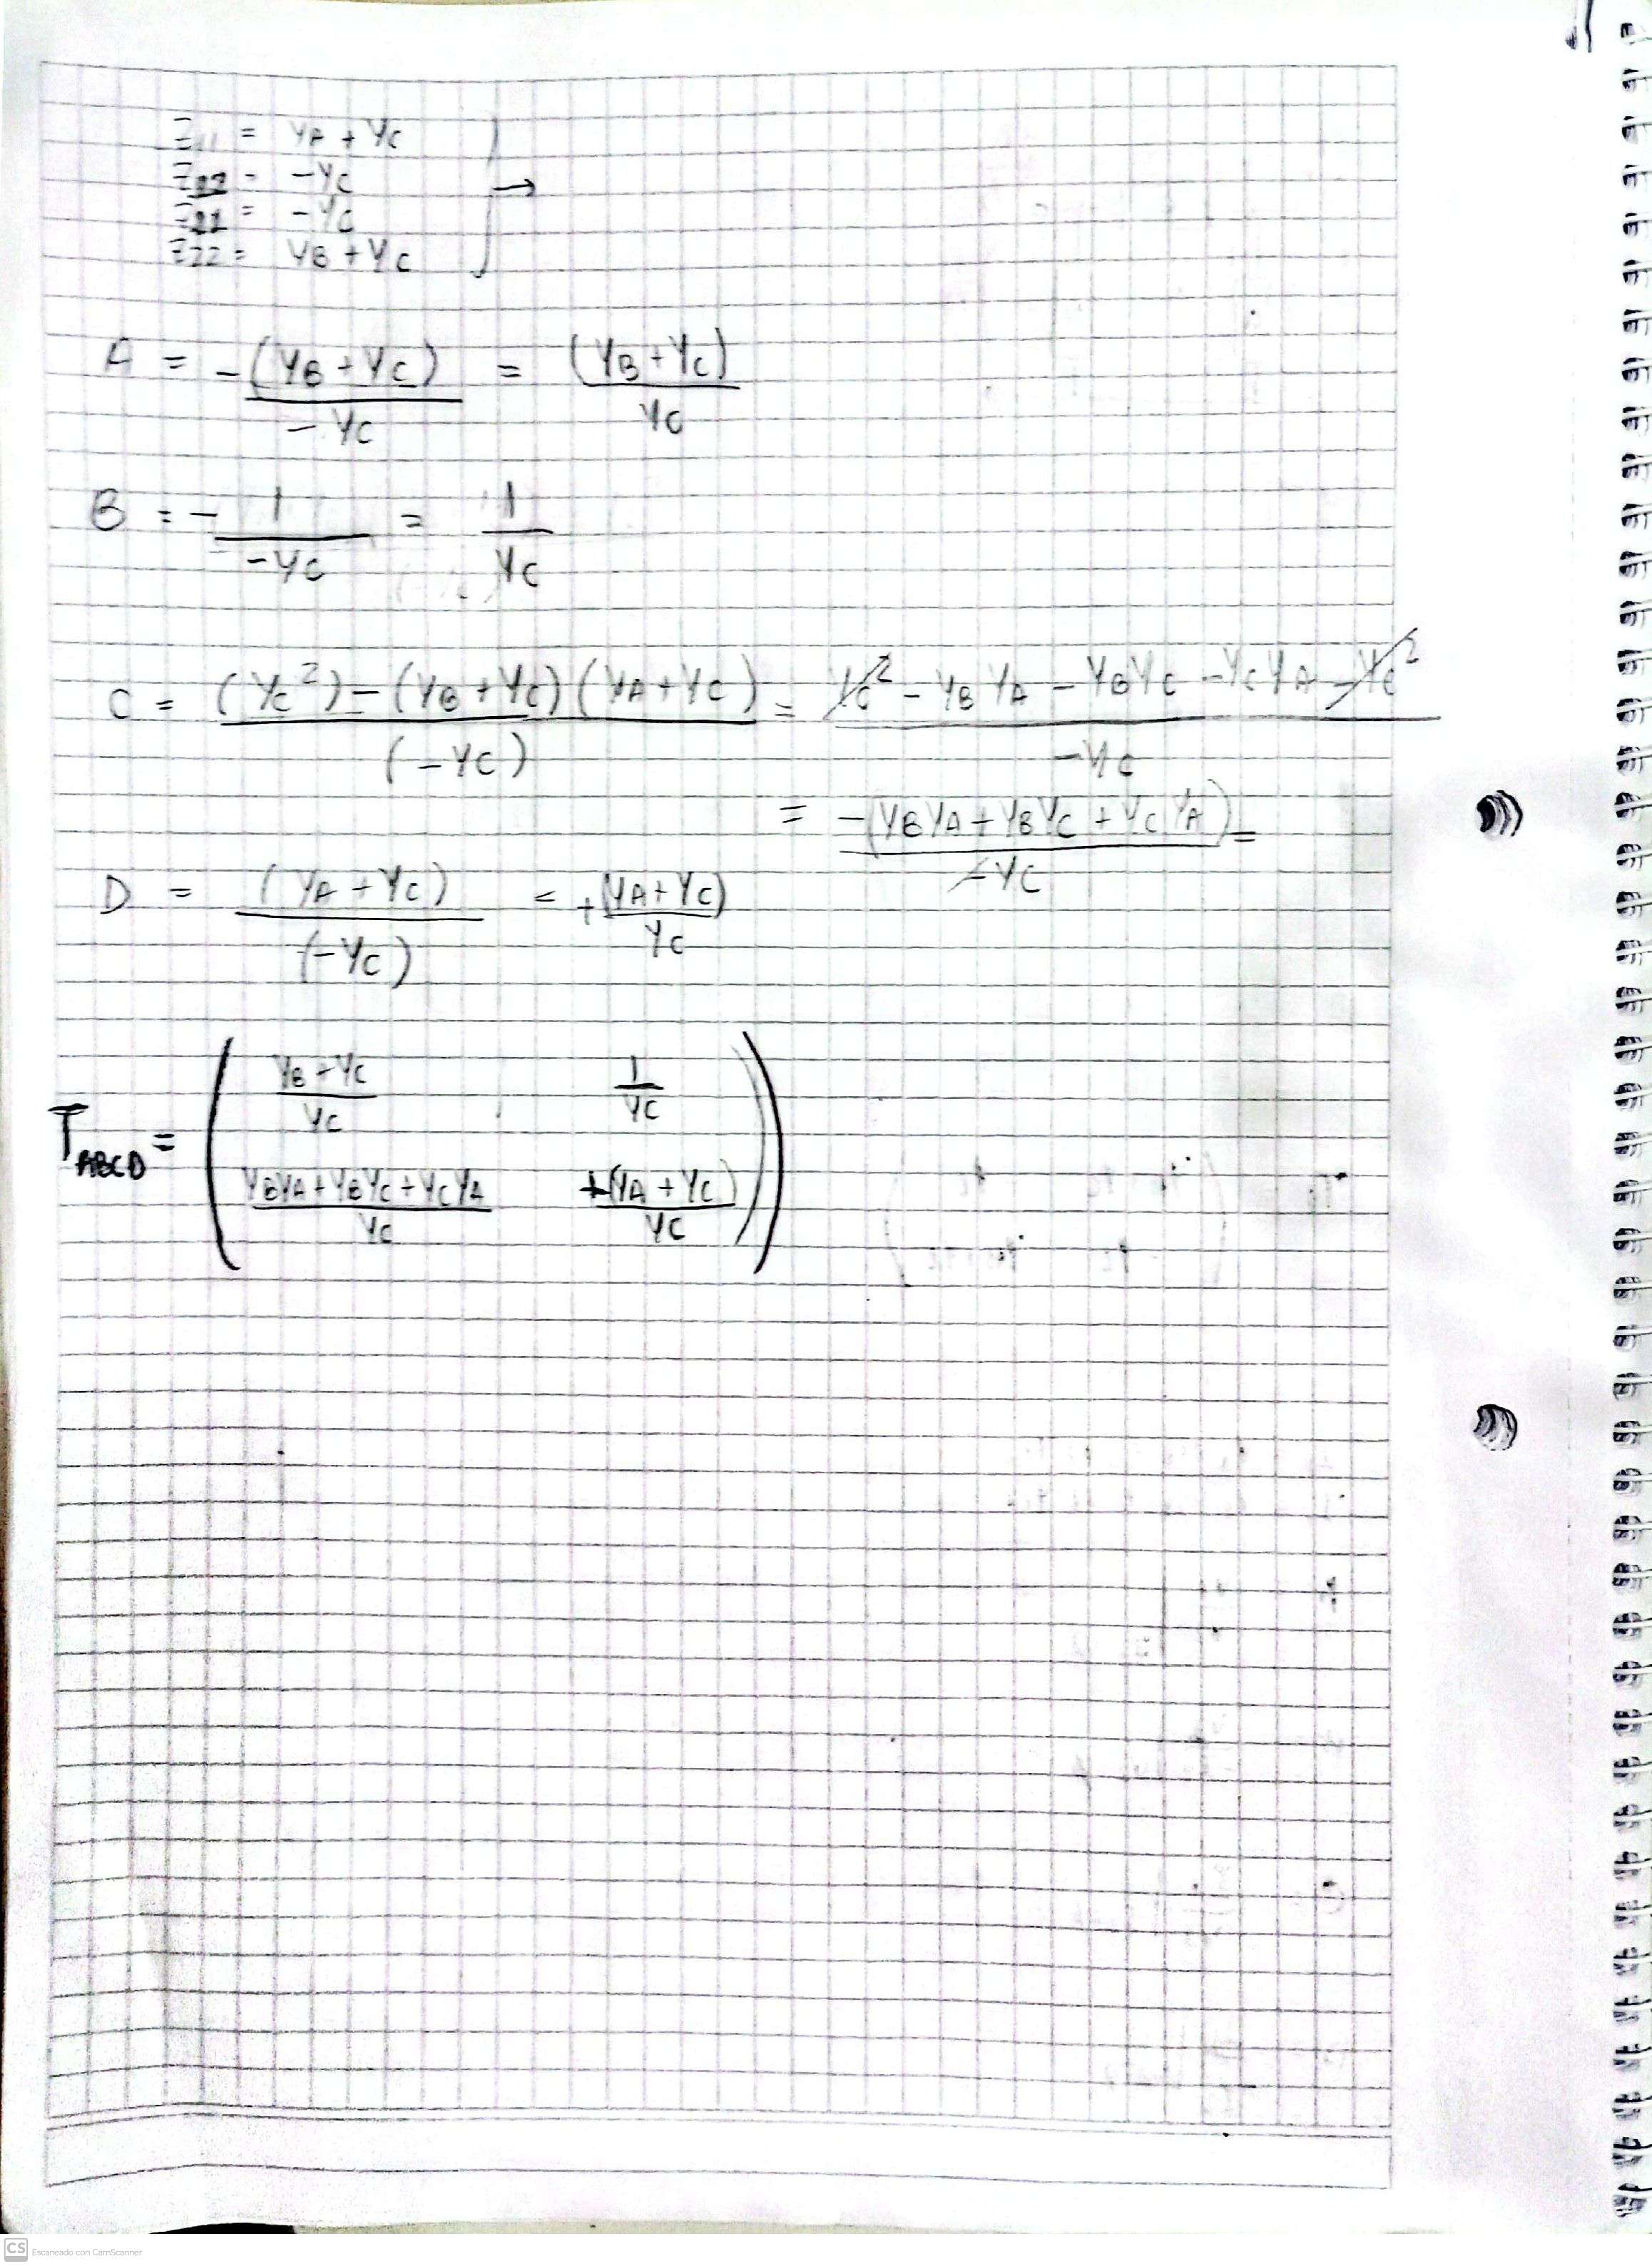 Z11 = YA + YC
Z12 = -YC
Z21 = -YC
Z22 = YB + YC
→
A = -(YB + YC) / -YC = (YB + YC) / YC
B = - 1 / -YC = 1 / YC
C = (YC²) - (YB + YC)(YA + YC) / (-YC) = YC² - YB YA - YB YC - YC YA - YC² / -YC
= -(YB YA + YB YC + YC YA) / -YC =
D = (YA + YC) / (-YC) = +(YA + YC) / YC
T ABCD = ( YB + YC / YC 1 / YC
YBYA + YBYC + YCYA / YC +(YA + YC) / YC )
CS Escaneado con CamScanner